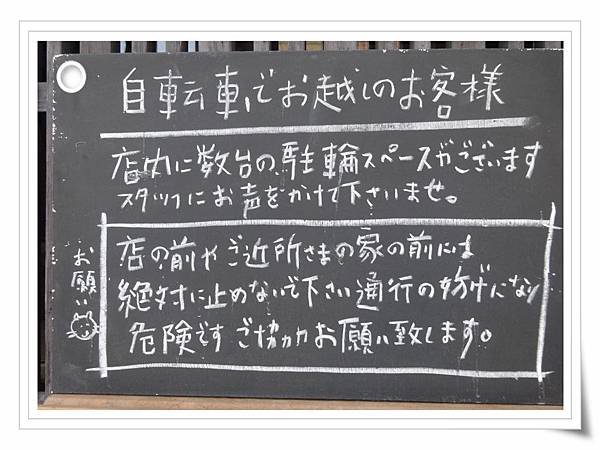 自転車でお越しのお客様
店内に数台の駐輪スペースがございます
スタッフにお声をかけて下さいませ。
お願い
店の前やご近所さまの家の前には
絶対に止めないで下さい通行の妨げになり
危険です ご協力お願い致します。